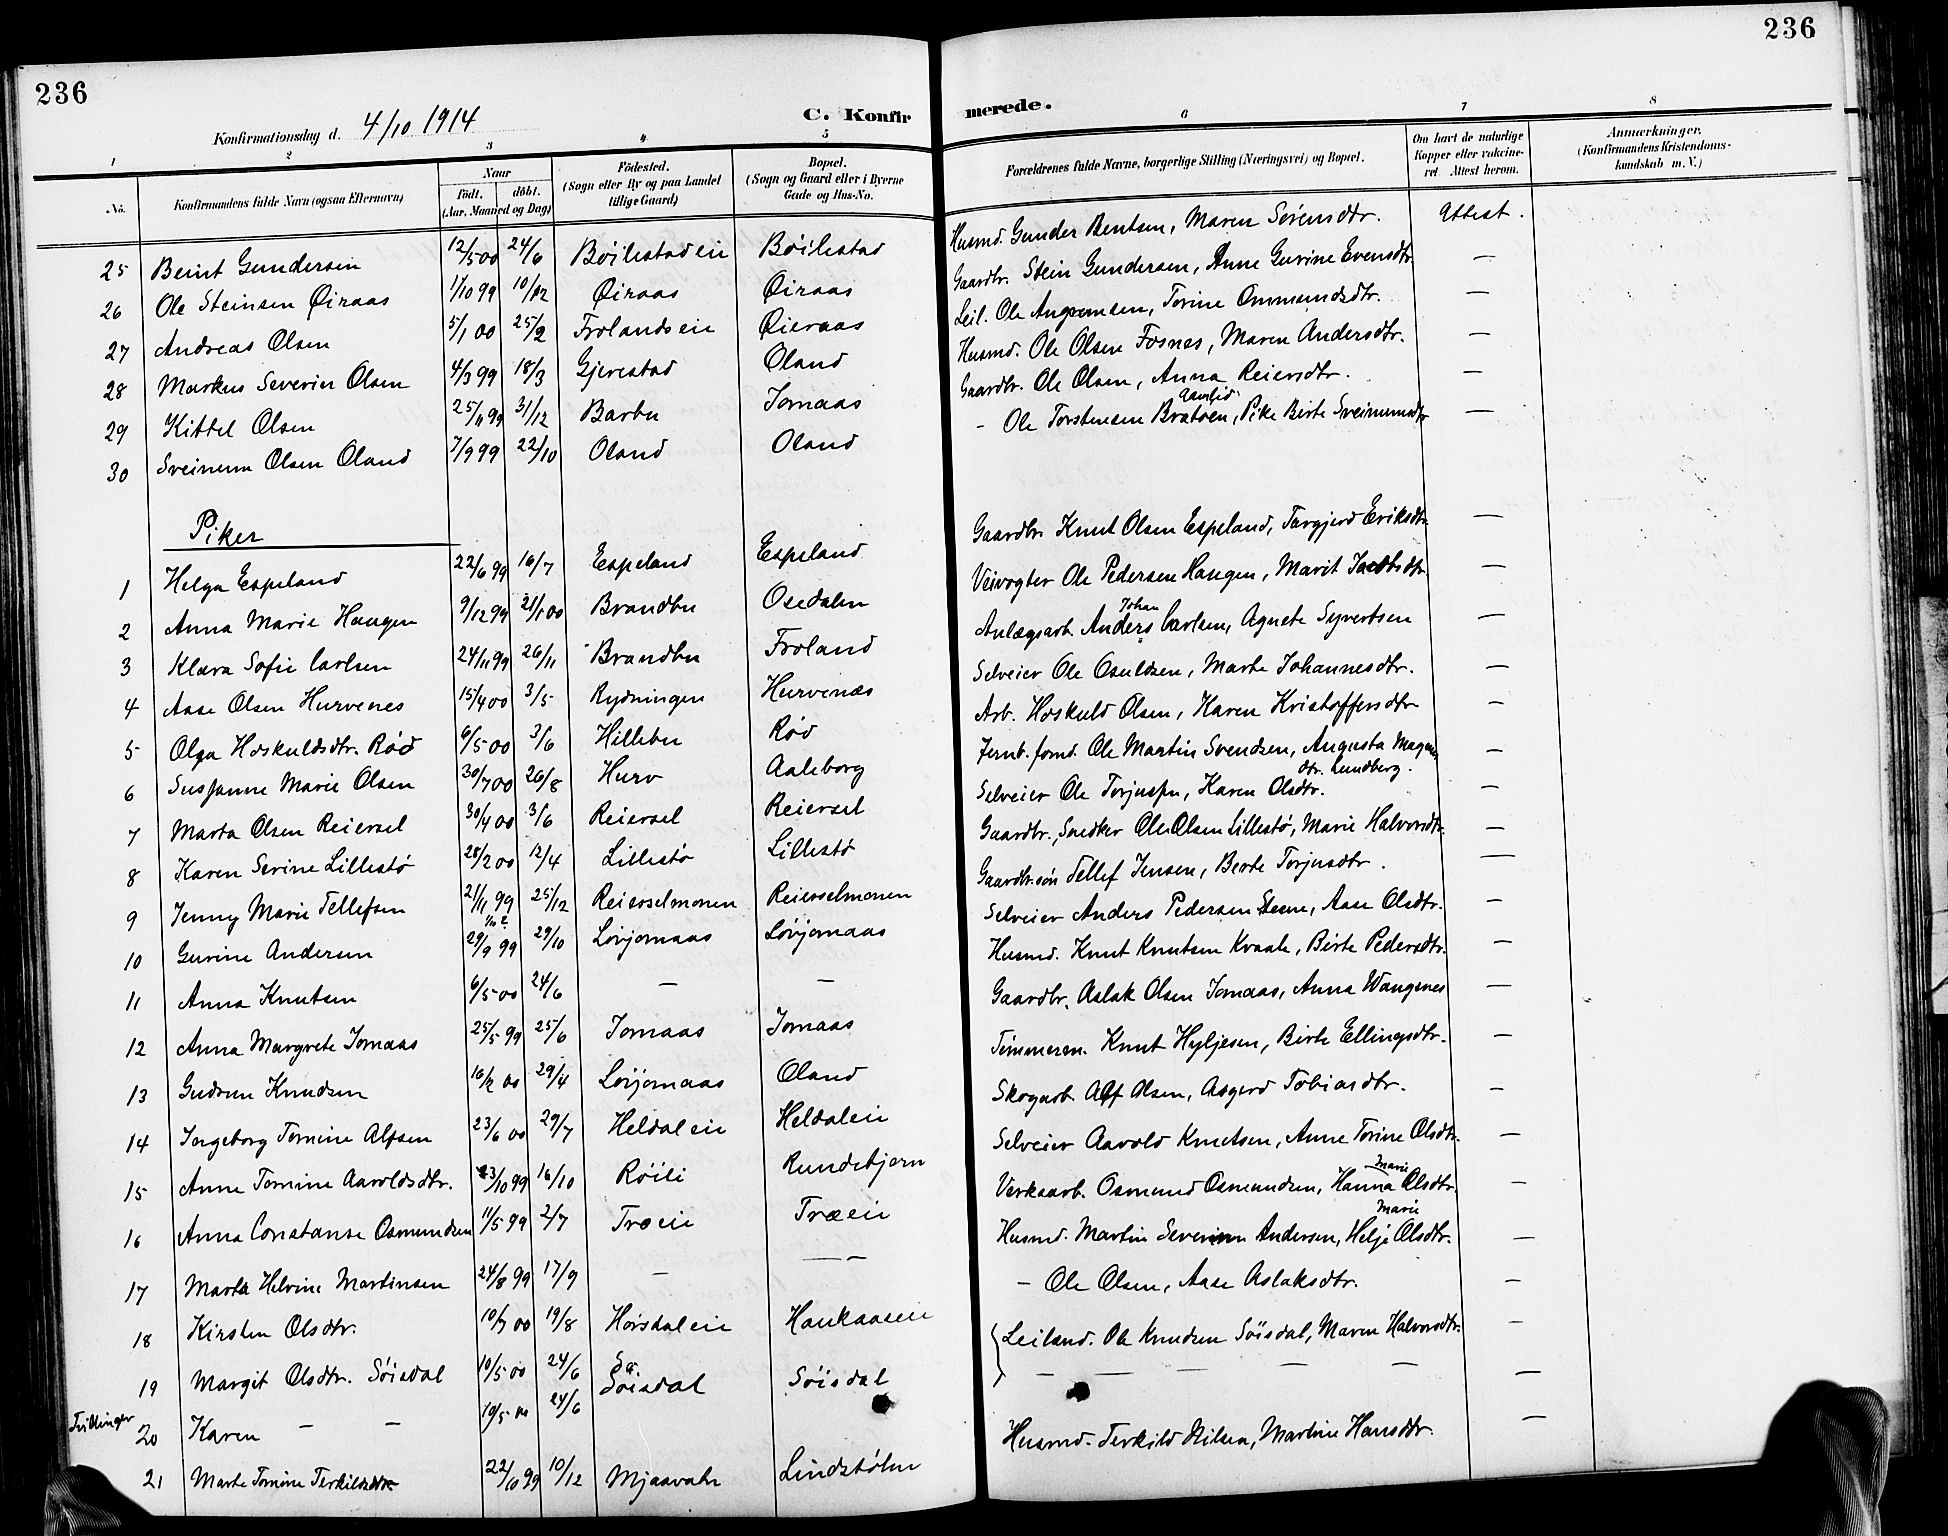 236
236
Konfirmationsdag d. 4/10 1914
C. Konfir merede.
1 2 3 4 5 6 7 8
No. Konfirmandens fulde Navn (ogsaa Efternavn) Naar Født. døbt. (Aar, Maaned og Dag) Fødested. (Sogn eller By og paa Landet tillige Gaard) Bopæl. (Sogn og Gaard eller i Byerne Gade og Hus-No. Forældrenes fulde Navne, borgerlige Stilling (Næringsvei) og Bopæl. Om havt de naturlige Kopper eller vakcineret. Attest herom. Anmærkninger. (Konfirmandens Kristendomskundskab m. V.)
25 Beint Gundersen 12/5 00 24/6 Bøilestad eie Bøilestad Husmd. Gunder Bentsen, Maren Sørensdtr. Attest.
26 Ole Steinsen Øiraas 1/10 99 10/12 Øiraas Øiraas Gaardbr. Stein Gundersen, Anne Gurine Evensdtr —
27 Andreas Olsen 5/1 00 25/2 Frolandseie Øieraas Leil. Ole Angremsen, Torine Ommundsdtr. —
28 Markus Severin Olsen 4/3 99 18/3 Gjerestad Oland Husmd. Ole Olsen Fosnes, Maren Andersdtr. —
29 Kittel Olsen 25/11 99 31/12 Barbu Jomaas Gaardbr. Ole Olsen, Anna Reiersdtr. —
30 Sveinum Olsen Oland 7/9 99 22/10 Oland Oland - Ole Torstensen Bratoen, Pike Birte Sveinumsdtr —
Piker
1 Helga Espeland 22/6 99 16/7 Espeland Espeland Gaardbr. Knut Olsen Espeland, Torgjerd Eriksdtr. —
2 Anna Marie Haugen 9/12 99 21/1 00 Brandbu Osedalen Veivogter Ole Pedersen Haugen, Marit Jacobsdtr —
3 Klara Sofie Carlsen 24/11 99 26/11 Brandbu Froland Anlægsarb. Anders Johan Carlsen, Agnete Syvertsen —
4 Aase Olsen Hurvenes 15/4 00 3/5 Rydningen Hurvenæs Selveier Ole Osuldsen, Marte Johannesdtr. —
5 Olga Hoskuldsdtr. Rød 6/5 00 3/6 Hillebu Rød Arb. Hoskuld Olsen, Karen Kristoffersdtr —
6 Susanne Marie Olsen 30/7 00 26/8 Hurv Aaleborg Jernb. formd. Ole Martin Svendsen, Augusta Magnus dtr. Lundberg. —
7 Marta Olsen Reiersel 30/4 00 3/6 Reiersel Reiersel Selveier Ole Torjussen, Karen Olsdtr. —
8 Karen Serine Lillestø 28/2 00 12/4 Lillestø Lillestø Gaardbr., Snedker Ole Olsen Lillestø, Marie Halvorsdtr. —
9 Jenny Marie Tellefsen 21/11 99 25/12 Reierselmonen Reierselmonen Gaardbr.søn Tellef Jensen, Berte Torjusdtr. —
10 Gurine Andersen 29/9 99 29/10 Lovjomaas Løvjomaas Selveier Anders Pedersen Steene, Aase Olsdtr. —
11 Anna Knutsen 6/5 00 24/6 — — Husmd. Knut Knutsen Kvaale, Birte Pedersdtr. —
12 Anna Margrete Jomaas 25/5 99 25/6 Jomaas Jomaas Gaardbr. Aslak Olsen Jomaas, Anna Wangsnes —
13 Gudrun Knudsen 16/2 00 29/4 Lovjomaas Oland Tømmerm. Knut Hyljesen, Birte Ellingsdtr. —
14 Ingeborg Tomine Alfsen 23/6 00 29/7 Heldaleie Heldaleie Skogarb. Alf Olsen, Asgerd Tobiasdtr. —
15 Anne Tomine Aaroldsdtr. 23/10 99 16/10 Røili Rundebjern Selveier Aarold Knutsen, Anne Torine Olsdtr. —
16 Anna Constanse Osmundsen 11/5 99 2/7 Træeie Træeie Verksarb. Osmund Osmundsen, Hanna Marie Olsdtr. —
17 Marta Helvine Martinsen 24/8 99 17/9 — — Husmd. Martin Severin Andersen, Helje Marie Olsdtr. —
18 Kirsten Olsdtr. 10/7 00 19/8 Horsdaleie Haukaaseie - Ole Olsen, Aase Aslaksdtr. —
19 Margit Olsdtr. Søisdal 10/5 00 24/6 Søisdal Søisdal Leiland. Ole Knudsen Søisdal, Maren Halvorsdtr. —
Tvillinger 20 Karen — — 10/5 00 24/6 — — — — —
21 Marte Tomine Terkildsdtr 22/10 99 10/12 Mjaavatn Lindstølen Husmd. Terkild Nilsen, Martine Hansdtr. —